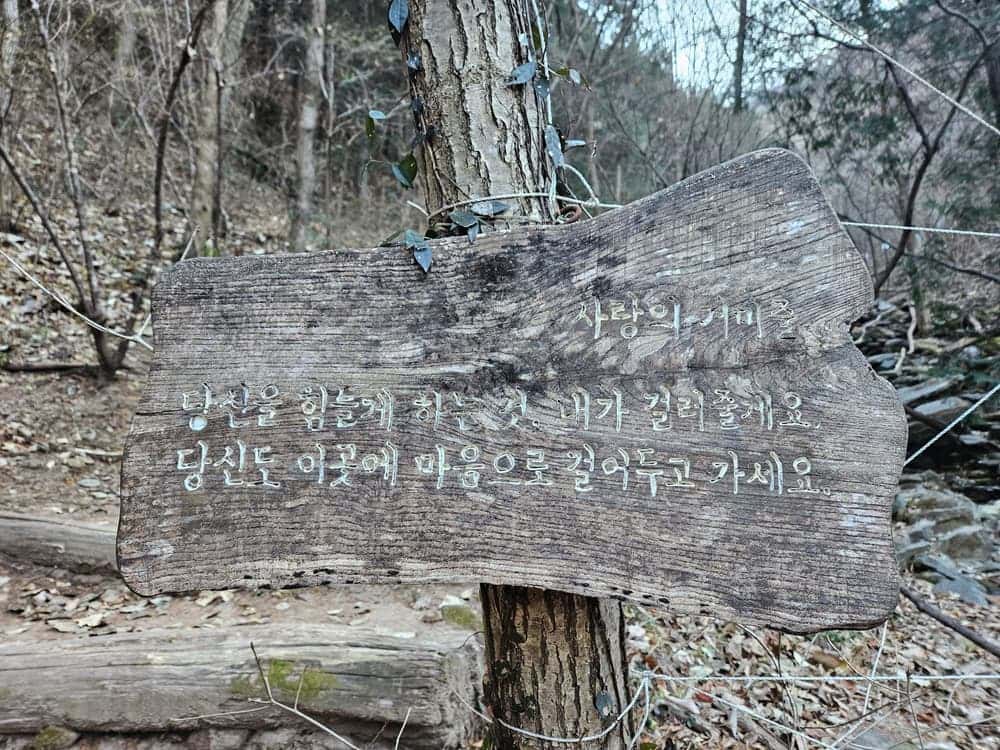 사랑의 거미줄
당신을 힘들게 하는 것, 내가 걸러줄게요.
당신도 이곳에 마음으로 걸어두고 가세요.